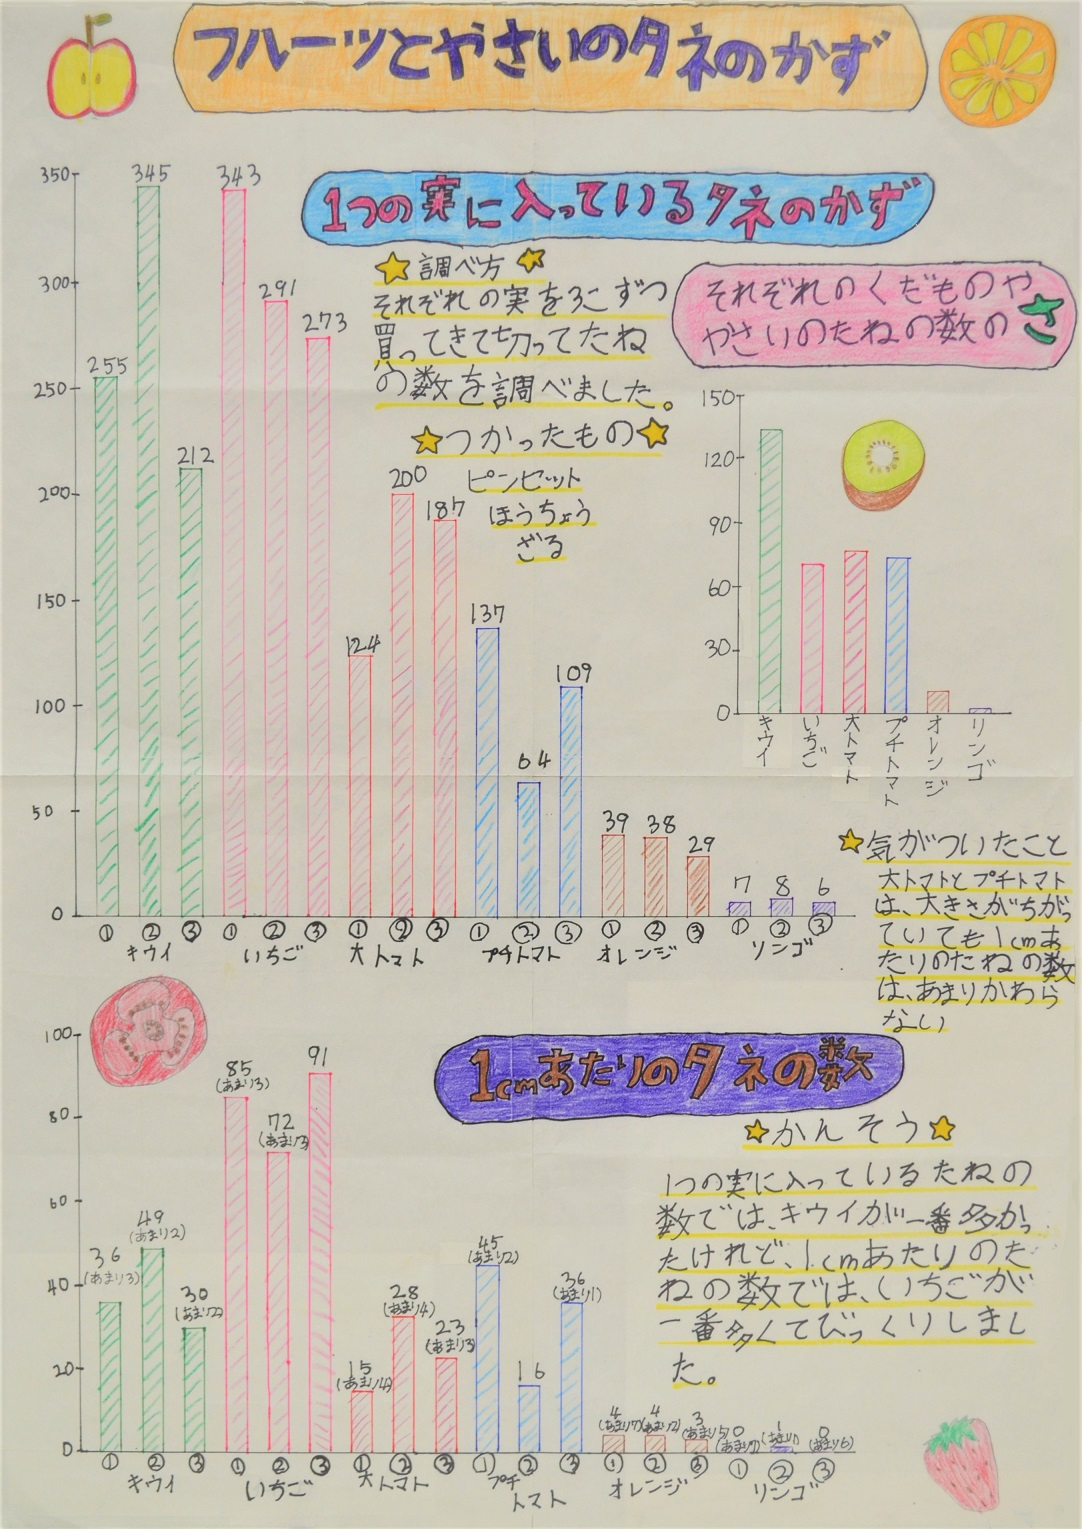 フルーツとやさいのタネのかず
1つの実に入っているタネのかず
☆調べ方☆
それぞれの実を3こずつ
買ってきて切ってたね
の数を調べました。
☆つかったもの☆
ピンセット
ほうちょう
ざる
350
300
250
200
150
100
50
0
255
345
212
343
291
273
124
200
187
137
64
109
39
38
29
7
8
6
① ② ③ ① ② ③ ① ② ③ ① ② ③ ① ② ③ ① ② ③
キウイ いちご 大トマト プチトマト オレンジ リンゴ
それぞれのくだものや
やさいのたねの数のさ
150
120
90
60
30
0
キウイ
いちご
大トマト
プチトマト
オレンジ
リンゴ
☆気がついたこと
大トマトとプチトマト
は、大きさがちがっ
ていても1cmあ
たりのたねの数
は、あまりかわら
ない
1cmあたりのタネの数
100
80
60
40
20
0
36
(あまり3)
49
(あまり2)
30
(あまり2)
85
(あまり3)
72
(あまり3)
91
15
(あまり4)
28
(あまり4)
23
(あまり3)
45
(あまり2)
16
36
(あまり1)
4
(あまり7)
4
(あまり2)
3
(あまり5)
0
(あまり7)
1
0
(あまり6)
① ② ③ ① ② ③ ① ② ③ ① ② ③ ① ② ③ ① ② ③
キウイ いちご 大トマト プチ オレンジ リンゴ
トマト
☆かんそう☆
1つの実に入っているたねの
数では、キウイが一番多かっ
たけれど、1cmあたりのた
ねの数では、いちごが
一番多くてびっくりしまし
た。